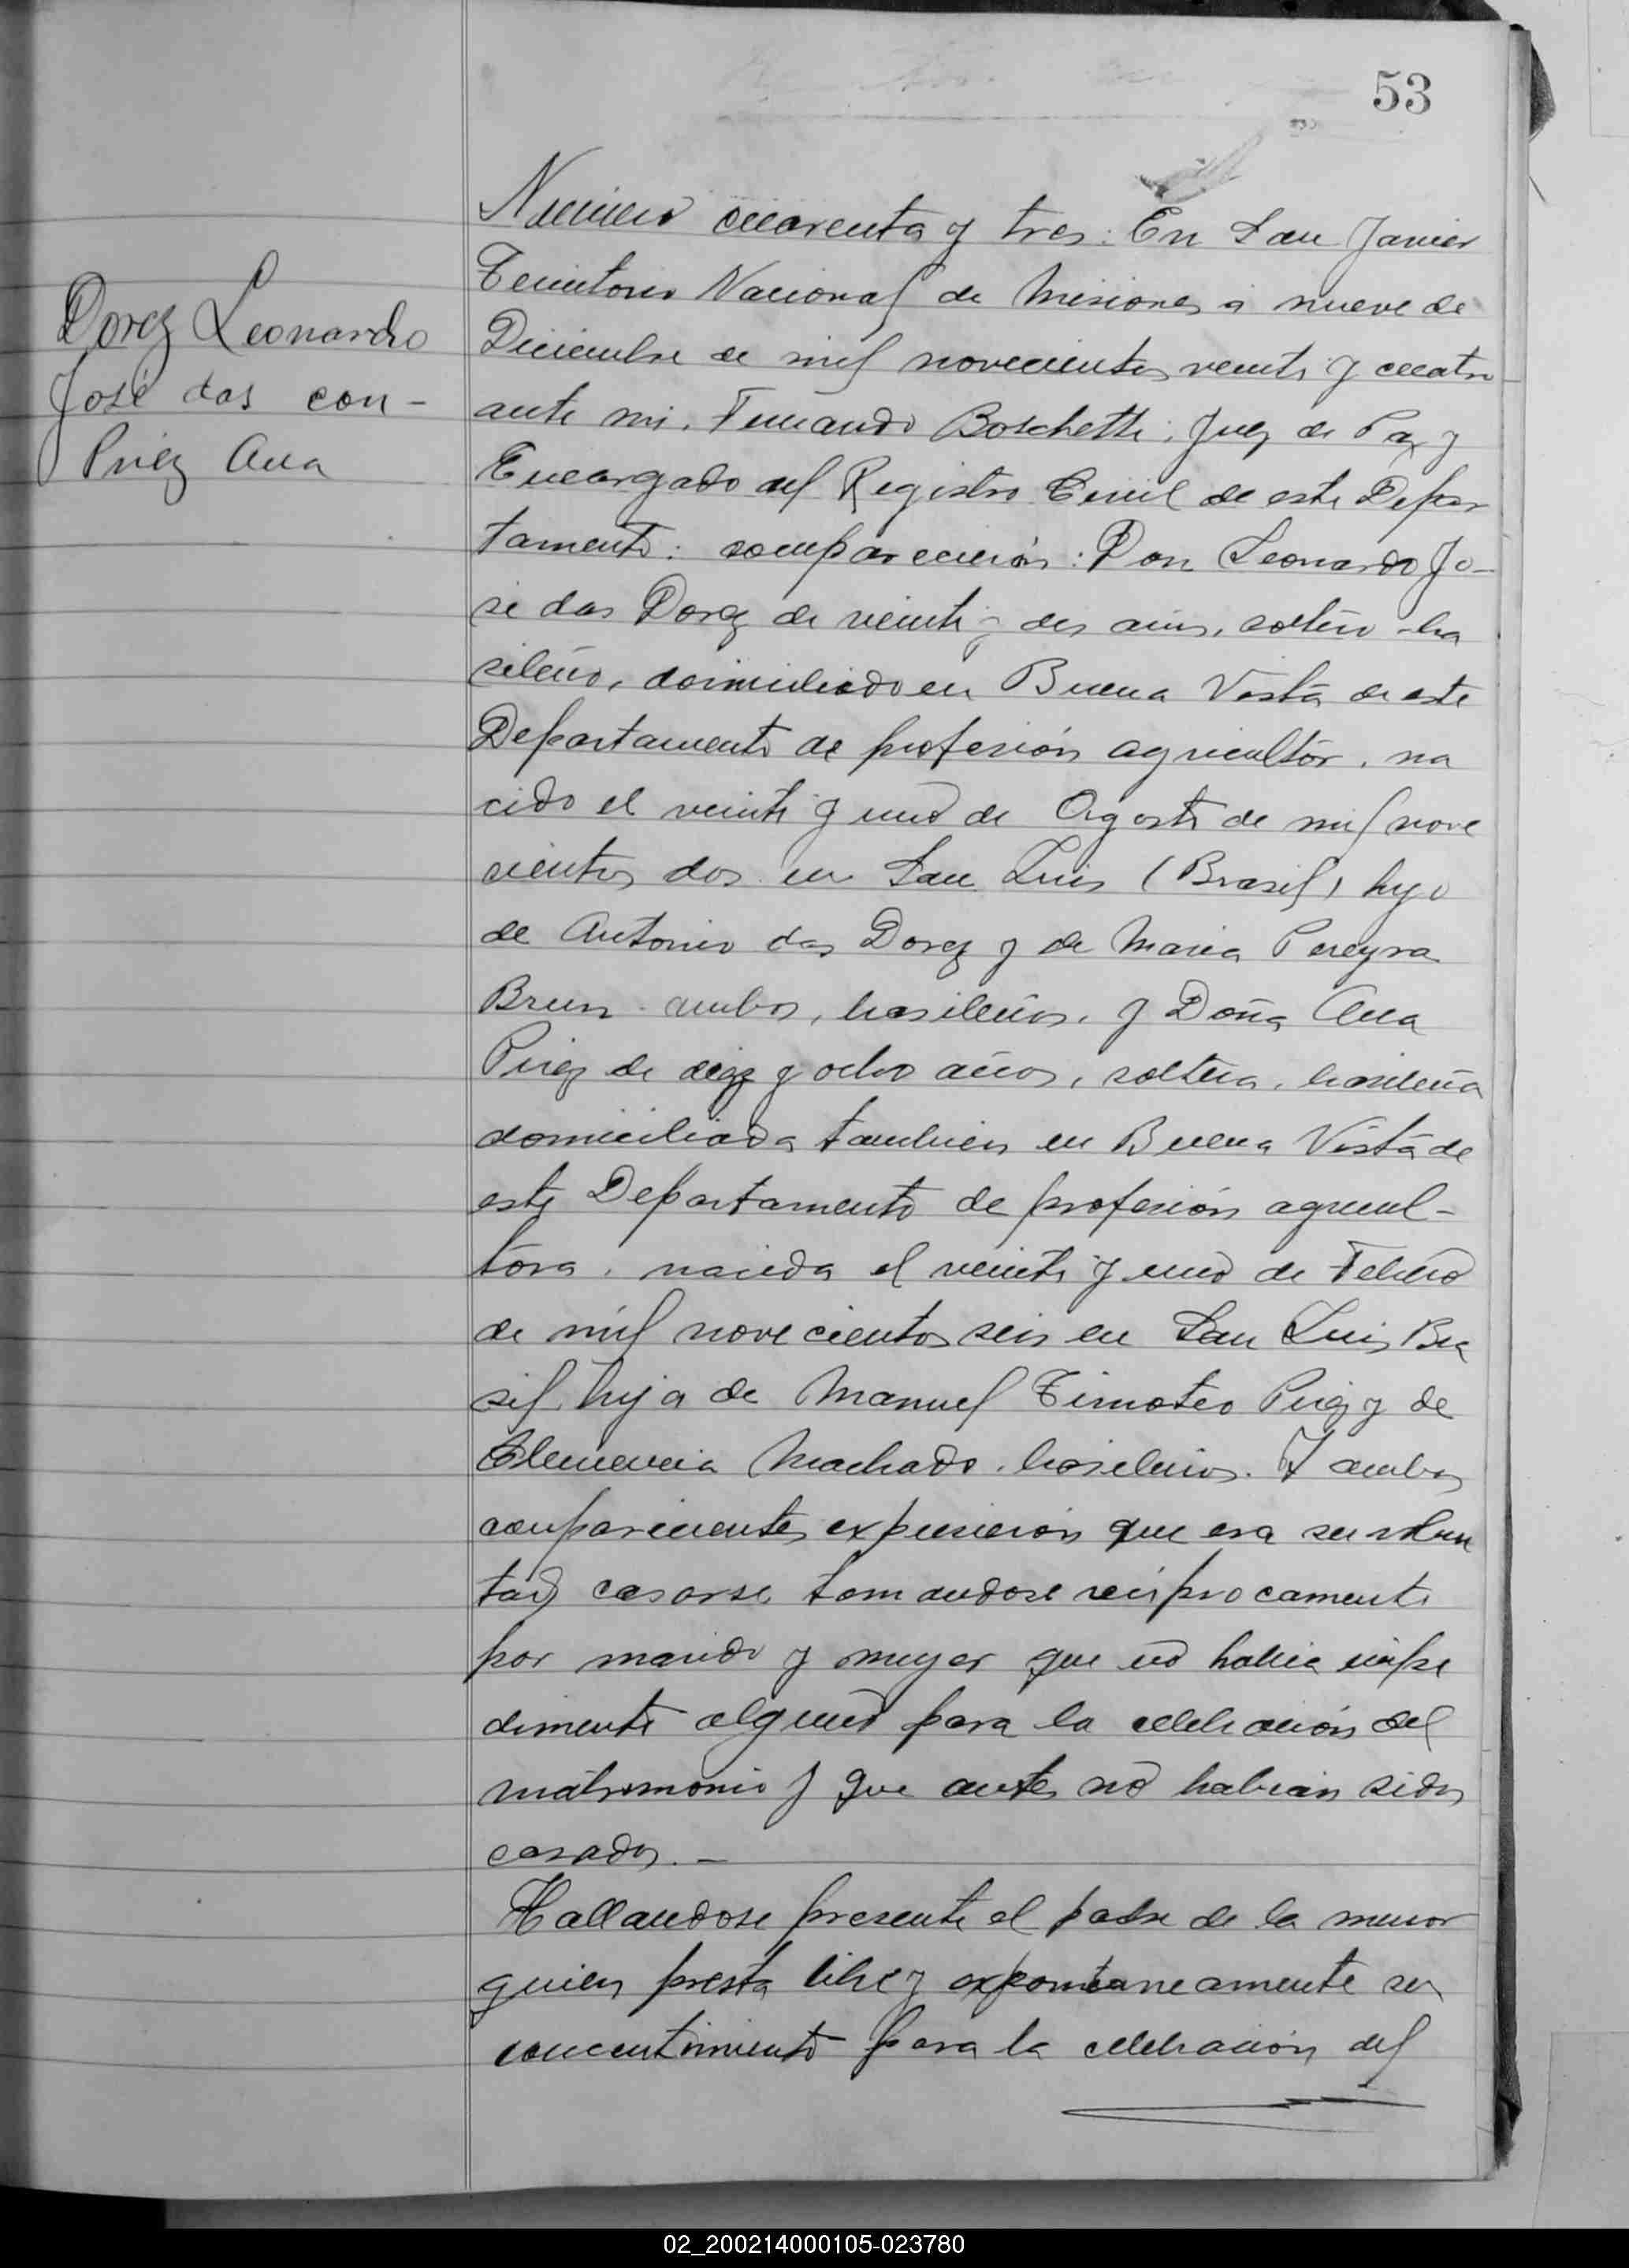 53
Dorez Leonardo
José das con-
Pirez Ana
Numero cuarenta y tres: En San Javier
Territorio Nacional de Misiones á nueve de
Diciembre de mil novecientos veinte y cuatro
ante mi, Fernando Boschetti, Juez de Paz y
Encargado del Registro Civil de este Depar
tamento: comparecieron: Don Leonardo Jo-
sé das Dorez de veinte y dos años, soltero bra
sileño, domiciliado en Buena Vista de este
Departamento de profesión agricultor, na
cido el veinte y uno de Agosto de mil nove
cientos dos en San Luis (Brasil) hijo
de Antonio das Dorez y de Maria Pereyra
Brun ambos, brasileños, y Doña Ana
Pirez de diez y ocho años, soltera, brasileña
domiciliada tambien en Buena Vista de
este Departamento de profesión agricul-
tora, nacida el veinte y uno de Febrero
de mil novecientos seis en San Luis Bra
sil, hija de Manuel Timoteo Pirez y de
Clemencia Machado, brasileños. Y ambos
comparecientes expusieron que era su volun
tad casarse tomandose reciprocamente
por marido y mujer que no habia impe
dimento alguno para la celebración del
matrimonio y que antes no habian sidos
casados.-
Hallandose presente el padre de la menor
quien presta libre y expontaneamente su
concentimiento para la celebración del
02_200214000105-023780